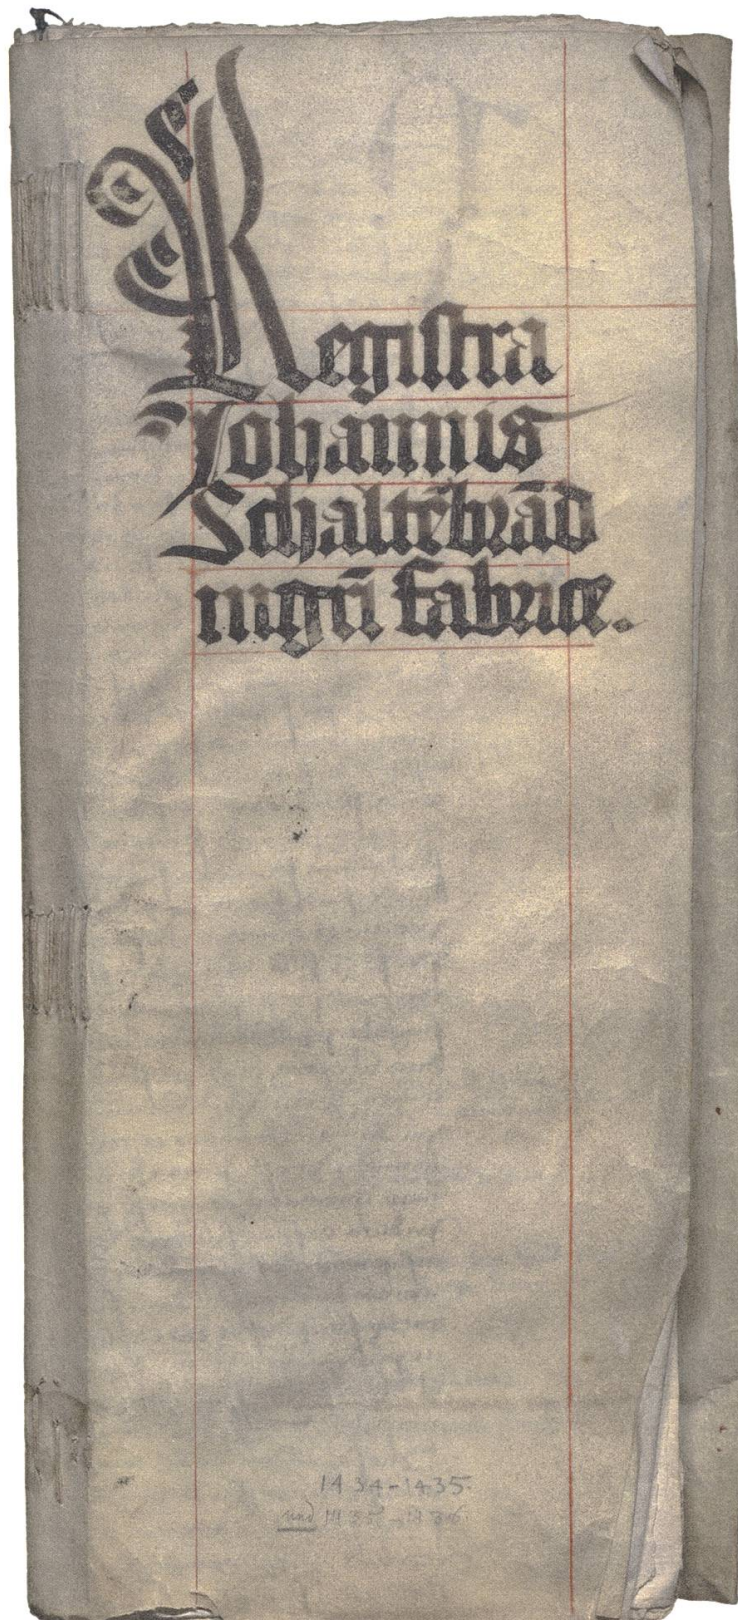 Registra
Johannis
Schaltēbrād
mgrī fabrice.
1434-1435.
und 1435-1436.